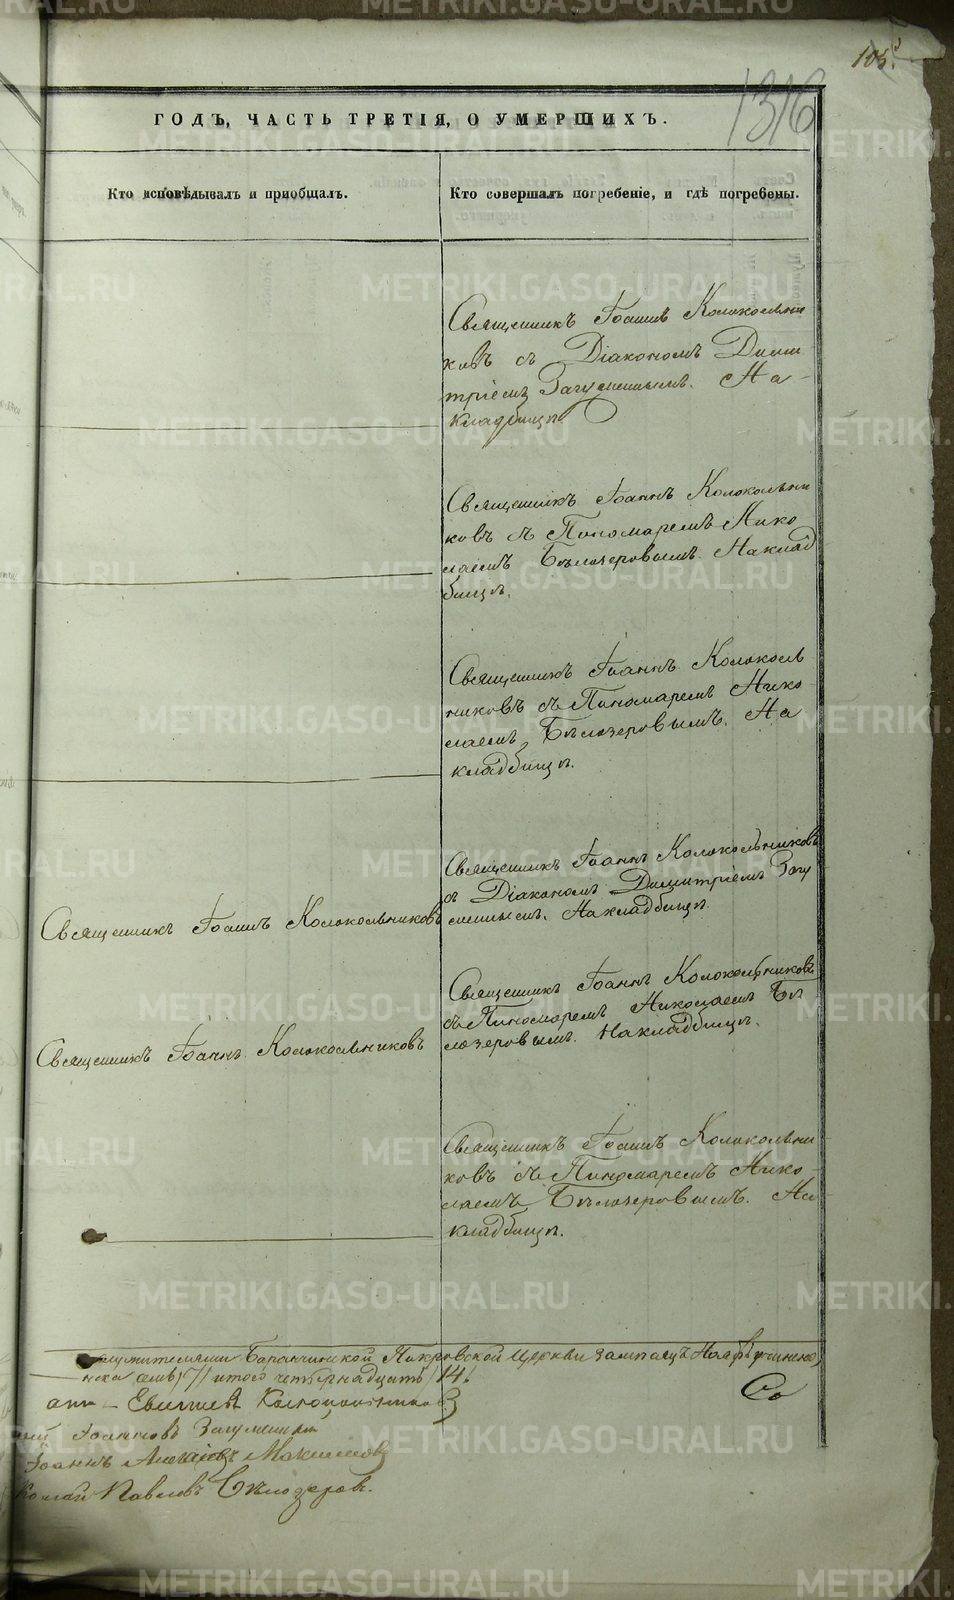 105
1316
ГОДЪ, ЧАСТЬ ТРЕТІЯ, О УМЕРШИХЪ.
Кто исповѣдывалъ и приобщалъ.
Кто совершалъ погребеніе, и гдѣ погребены.
Священникъ Іоаннъ Колокольни
ковъ съ Діакономъ Дими
тріемъ Загуменнымъ. На
кладбищѣ
Священникъ Іоаннъ Колокольни
ковъ съ Пономаремъ Нико
лаемъ Бѣлозеровымъ. Наклад
бищѣ.
Священникъ Іоаннъ Колоколь
никовъ съ Пономаремъ Нико
лаемъ Бѣлозеровымъ. На
кладбищѣ.
Священникъ Іоаннъ Колокольниковъ
Священникъ Іоаннъ Колокольниковъ
съ Діакономъ Димитріемъ Загу
меннымъ. Накладбищѣ.
Священникъ Іоаннъ Колокольниковъ
Священникъ Іоаннъ Колокольниковъ
съ Пономаремъ Николаемъ Бѣ
лозеровымъ. Накладбищѣ.
Священникъ Іоаннъ Колокольни
ковъ съ Пономаремъ Нико
лаемъ Бѣлозеровымъ. На
кладбищѣ.
служителями Баранчинской Покровской Церкви за мѣсяцъ Ноябрь
итого четырнадцать 14.
Колокольниковъ
Іоанновъ Загуменны
Іоаннъ
Павловъ Бѣлозеровъ.
METRIKI.GASO-URAL.RU